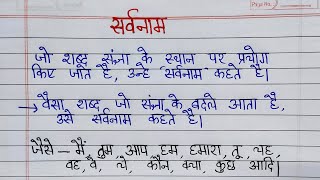 सर्वनाम
जो शब्द संज्ञा के स्थान पर प्रयोग
किए जाते है, उन्हे सर्वनाम कहते है।
→ वैसा शब्द जो संज्ञा के बदले आता है,
उसे सर्वनाम कहते है।
जैसे — मैं, तुम, आप, हम, हमारा, तू, यह,
वह, वे, ये, कौन, क्या, कुछ आदि।